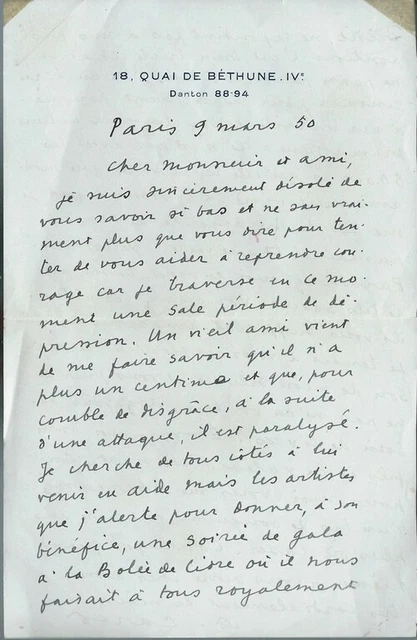 18, QUAI DE BÉTHUNE. IVᵉ
Danton 88-94
Paris 9 mars 50
Cher monsieur et ami,
Je suis sincèrement désolé de
vous savoir si bas et ne sais vrai-
ment plus que vous dire pour ten-
ter de vous aider à reprendre cou-
rage car je traverse en ce mo-
ment une sale période de dé-
pression. Un vieil ami vient
de me faire savoir qu'il n'a
plus un centime et que, pour
comble de disgrâce, à la suite
d'une attaque, il est paralysé.
Je cherche de tous côtés à lui
venir en aide mais les artistes
que j'alerte pour donner, à son
bénéfice, une soirée de gala
à la Bolée de Cidre où il nous
faisait à tous royalement